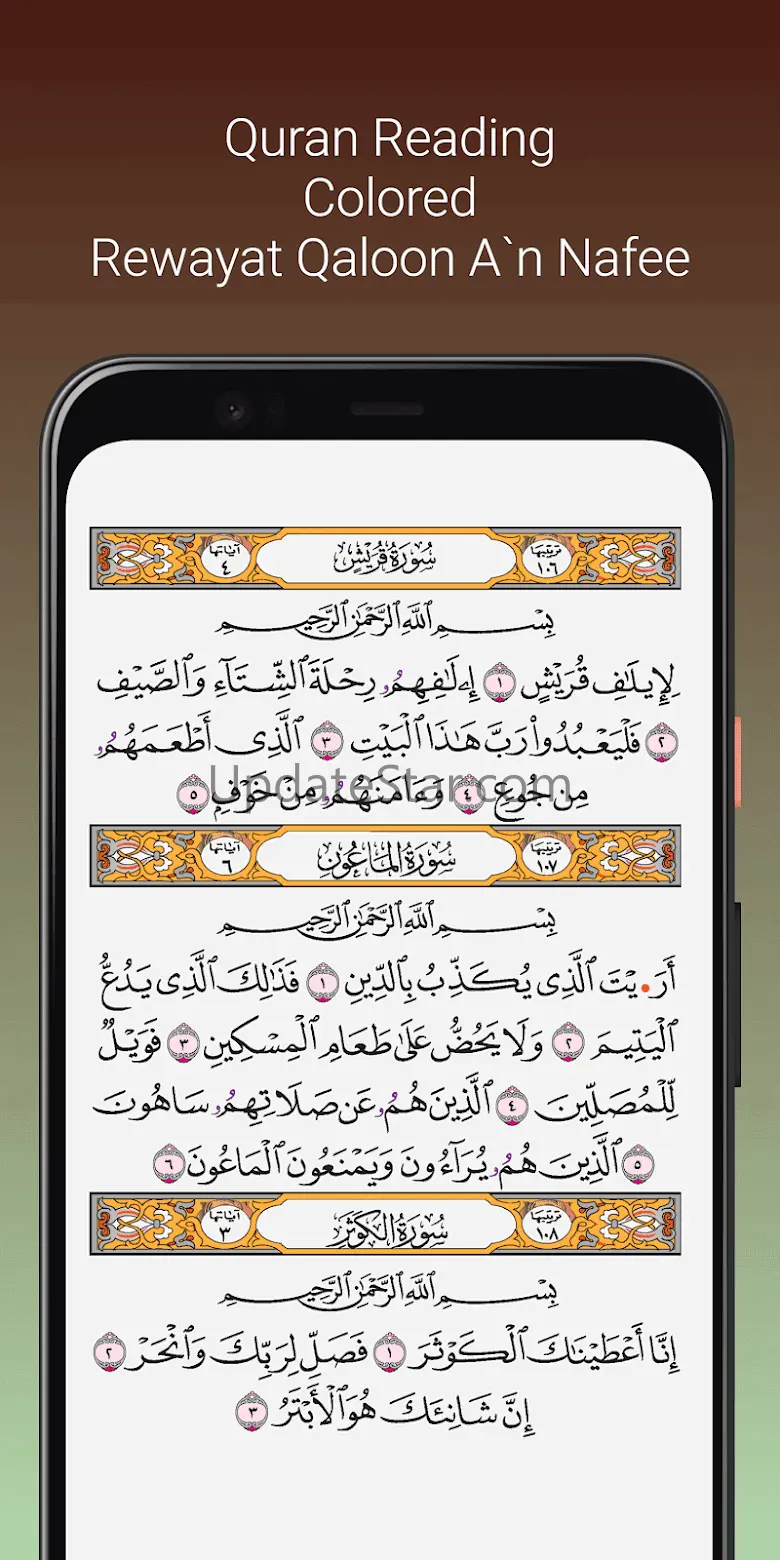 Quran Reading
Colored
Rewayat Qaloon A`n Nafee
ترتيبها ١٠٦ سُورَةُ قُرَيْشٍ آياتها ٤
بِسْمِ اللَّهِ الرَّحْمَٰنِ الرَّحِيمِ
لِإِيلَٰفِ قُرَيْشٍ ١ إِۦلَٰفِهِمُۥ رِحْلَةَ اَلشِّتَآءِ وَالصَّيْفِ
٢ فَلْيَعْبُدُواْ رَبَّ هَٰذَا اَلْبَيْتِ ٣ اَلَّذِى أَطْعَمَهُمُۥ
مِن جُوعٍ ٤ وَءَامَنَهُمُۥ مِنْ خَوْفٍ ٥
UpdateStar.com
ترتيبها ١٠٧ سُورَةُ الْمَاعُونِ آياتها ٦
بِسْمِ اللَّهِ الرَّحْمَٰنِ الرَّحِيمِ
أَرَ•يْتَ اَلَّذِى يُكَذِّبُ بِالدِّينِ ١ فَذَٰلِكَ اَلَّذِى يَدُعُّ
اَلْيَتِيمَ ٢ وَلَا يَحُضُّ عَلَىٰ طَعَامِ اِلْمِسْكِينِ ٣ فَوَيْلٌ
لِّلْمُصَلِّينَ ٤ اَلَّذِينَ هُمُۥ عَن صَلَاتِهِمُۥ سَاهُونَ
٥ اَلَّذِينَ هُمُۥ يُرَآءُونَ وَيَمْنَعُونَ اَلْمَاعُونَ ٦
ترتيبها ١٠٨ سُورَةُ الْكَوْثَرِ آياتها ٣
بِسْمِ اللَّهِ الرَّحْمَٰنِ الرَّحِيمِ
إِنَّا أَعْطَيْنَٰكَ اَلْكَوْثَرَ ١ فَصَلِّ لِرَبِّكَ وَانْحَرْ ٢
إِنَّ شَانِئَكَ هُوَ اَلْأَبْتَرُ ٣